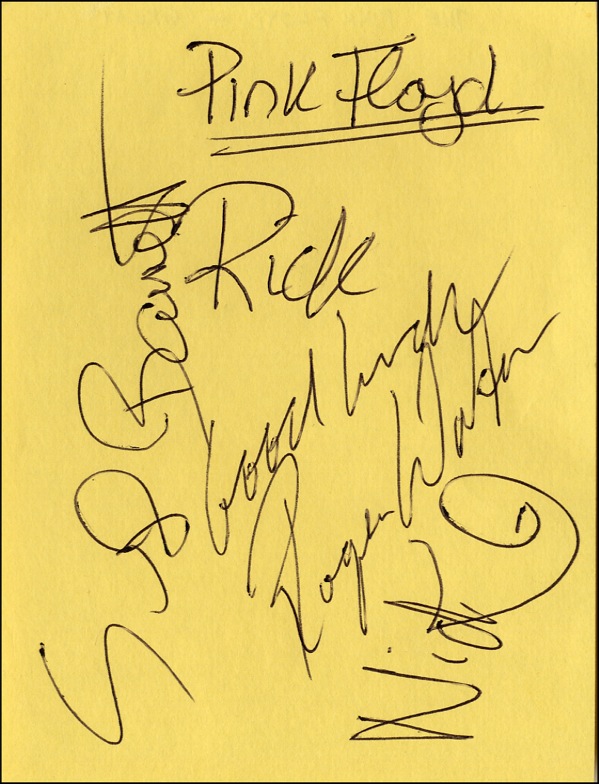 Pink Floyd
Rick
Syd Barrett
Good
Roger Waters
Nick